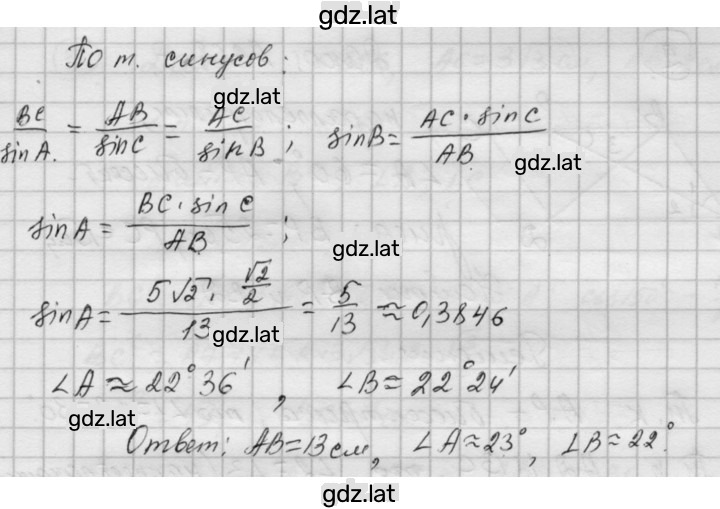 gdz.lat
По т. синусов:
gdz.lat
BC/sin A. = AB/sin C = AC/sin B ; sin B = AC · sin C/AB
gdz.lat
sin A = BC · sin C/AB ;
gdz.lat
sin A = 5√2 · √2/2/13 = 5/13 ≈ 0,3846
gdz.lat
∠A ≈ 22°36' , ∠B ≈ 22°24'
gdz.lat
Ответ: AB = 13 см, ∠A ≈ 23°, ∠B ≈ 22°.
gdz.lat